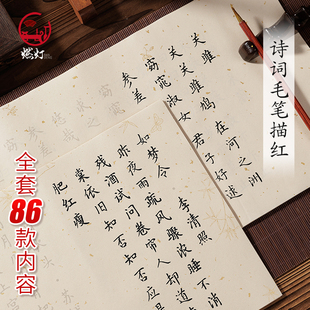 燃灯
诗词毛笔描红
关雎
关关雎鸠在河之洲
窈窕淑女君子好逑
参差
如梦令 李清照
昨夜雨疏风骤浓睡不消
残酒试问卷帘人却道
棠依旧知否知否应是
肥红瘦
全套86款内容